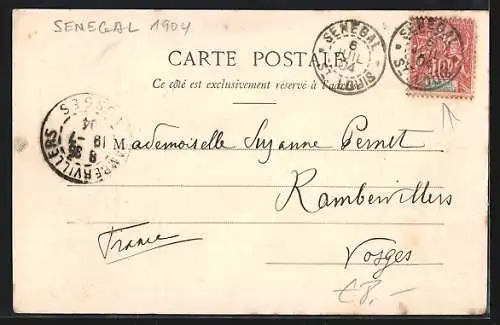 SENEGAL 1904
SENEGAL
6
JUIL
04
ST LOUIS
SENEGAL
6
04
ST LOUIS
10
CARTE POSTALE
Ce côté est exclusivement réservé à l'adresse
RAMBERVILLERS VOSGES
8
19 -7
04
Mademoiselle Suzanne Pernet
Rambervillers
France
Vosges
€8.-